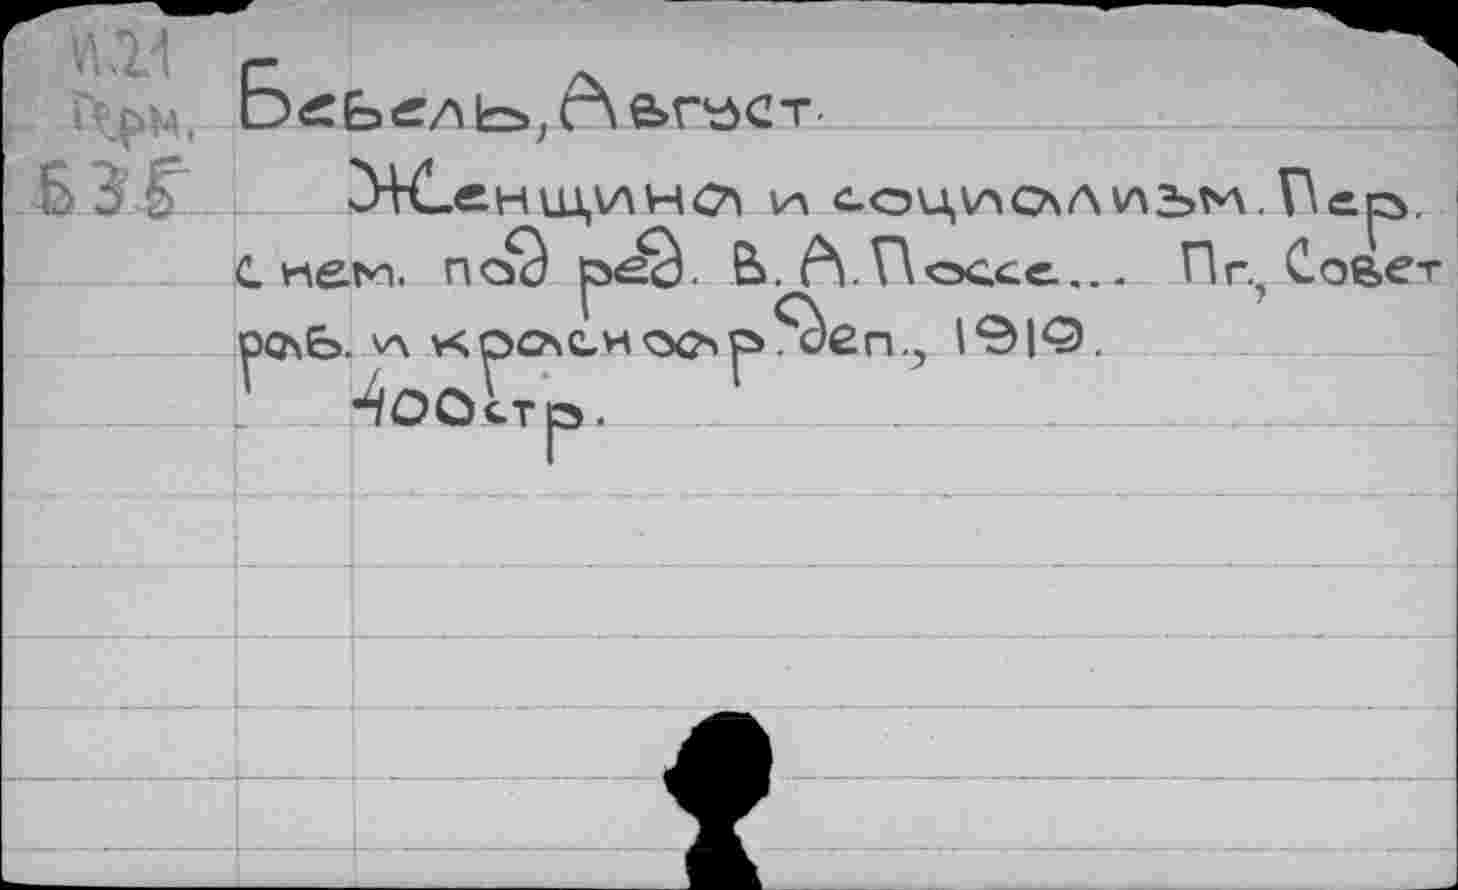 И.21
Герм.
Б35
Бебель, Август.
Женщина и социализм. Пер.
с нем. под ред. В. А. Поссе... Пг., Совет
раб. и красноар. деп., 1919.
400 стр.